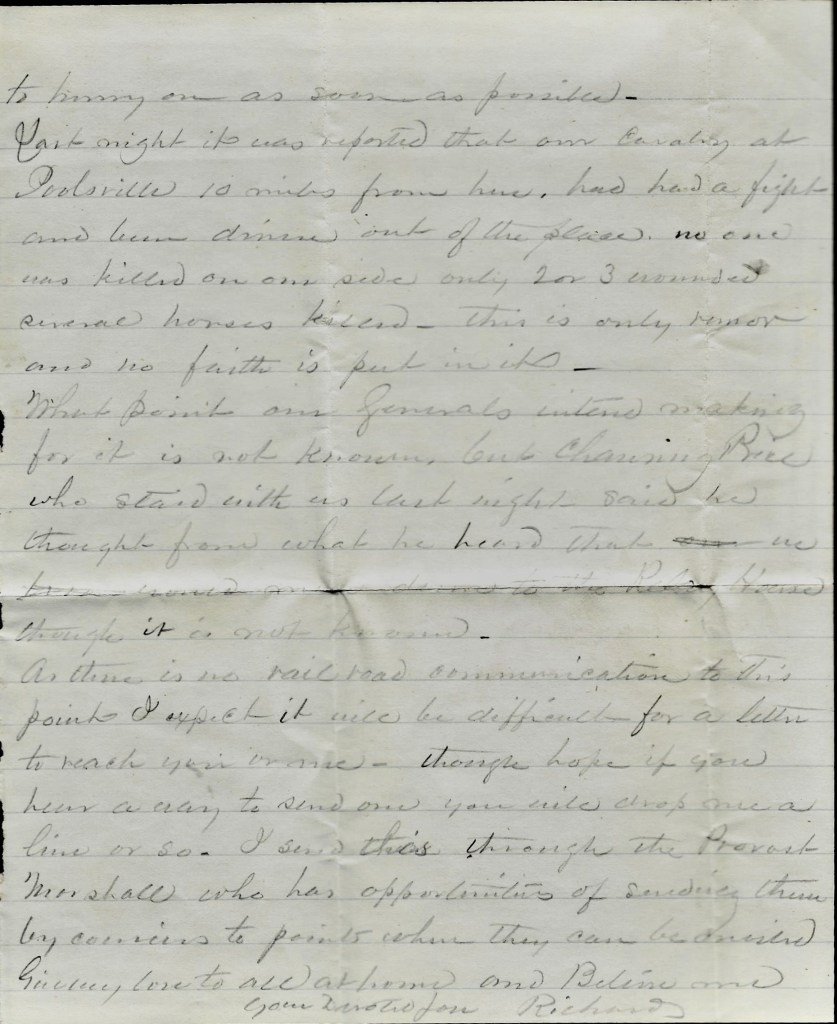 to hurry on as soon as possible -
Last night it was reported that our Cavalry at
Poolsville 10 miles from here, had had a fight
and been driven out of the place. no one
was killed on our side only 2 or 3 wounded
several horses killed - this is only rumor
and no faith is put in it -
What point our Generals intend making
for it is not known, but Channing Price
who staid with us last night said he
thought from what he heard that we
would to the Relay House
though it is not known -
As there is no rail road communication to this
point I expect it will be difficult for a letter
to reach you or me - though hope if you
hear a way to send one you will drop me a
line or so - I send this through the Provost
Marshall who has opportunities of sending them
by couriers to points where they can be
Give my love to all at home and Believe me
Your Devoted Son Richard